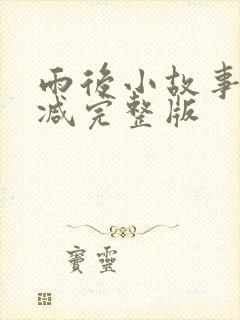 雨後小故事
减完整版
寶靈